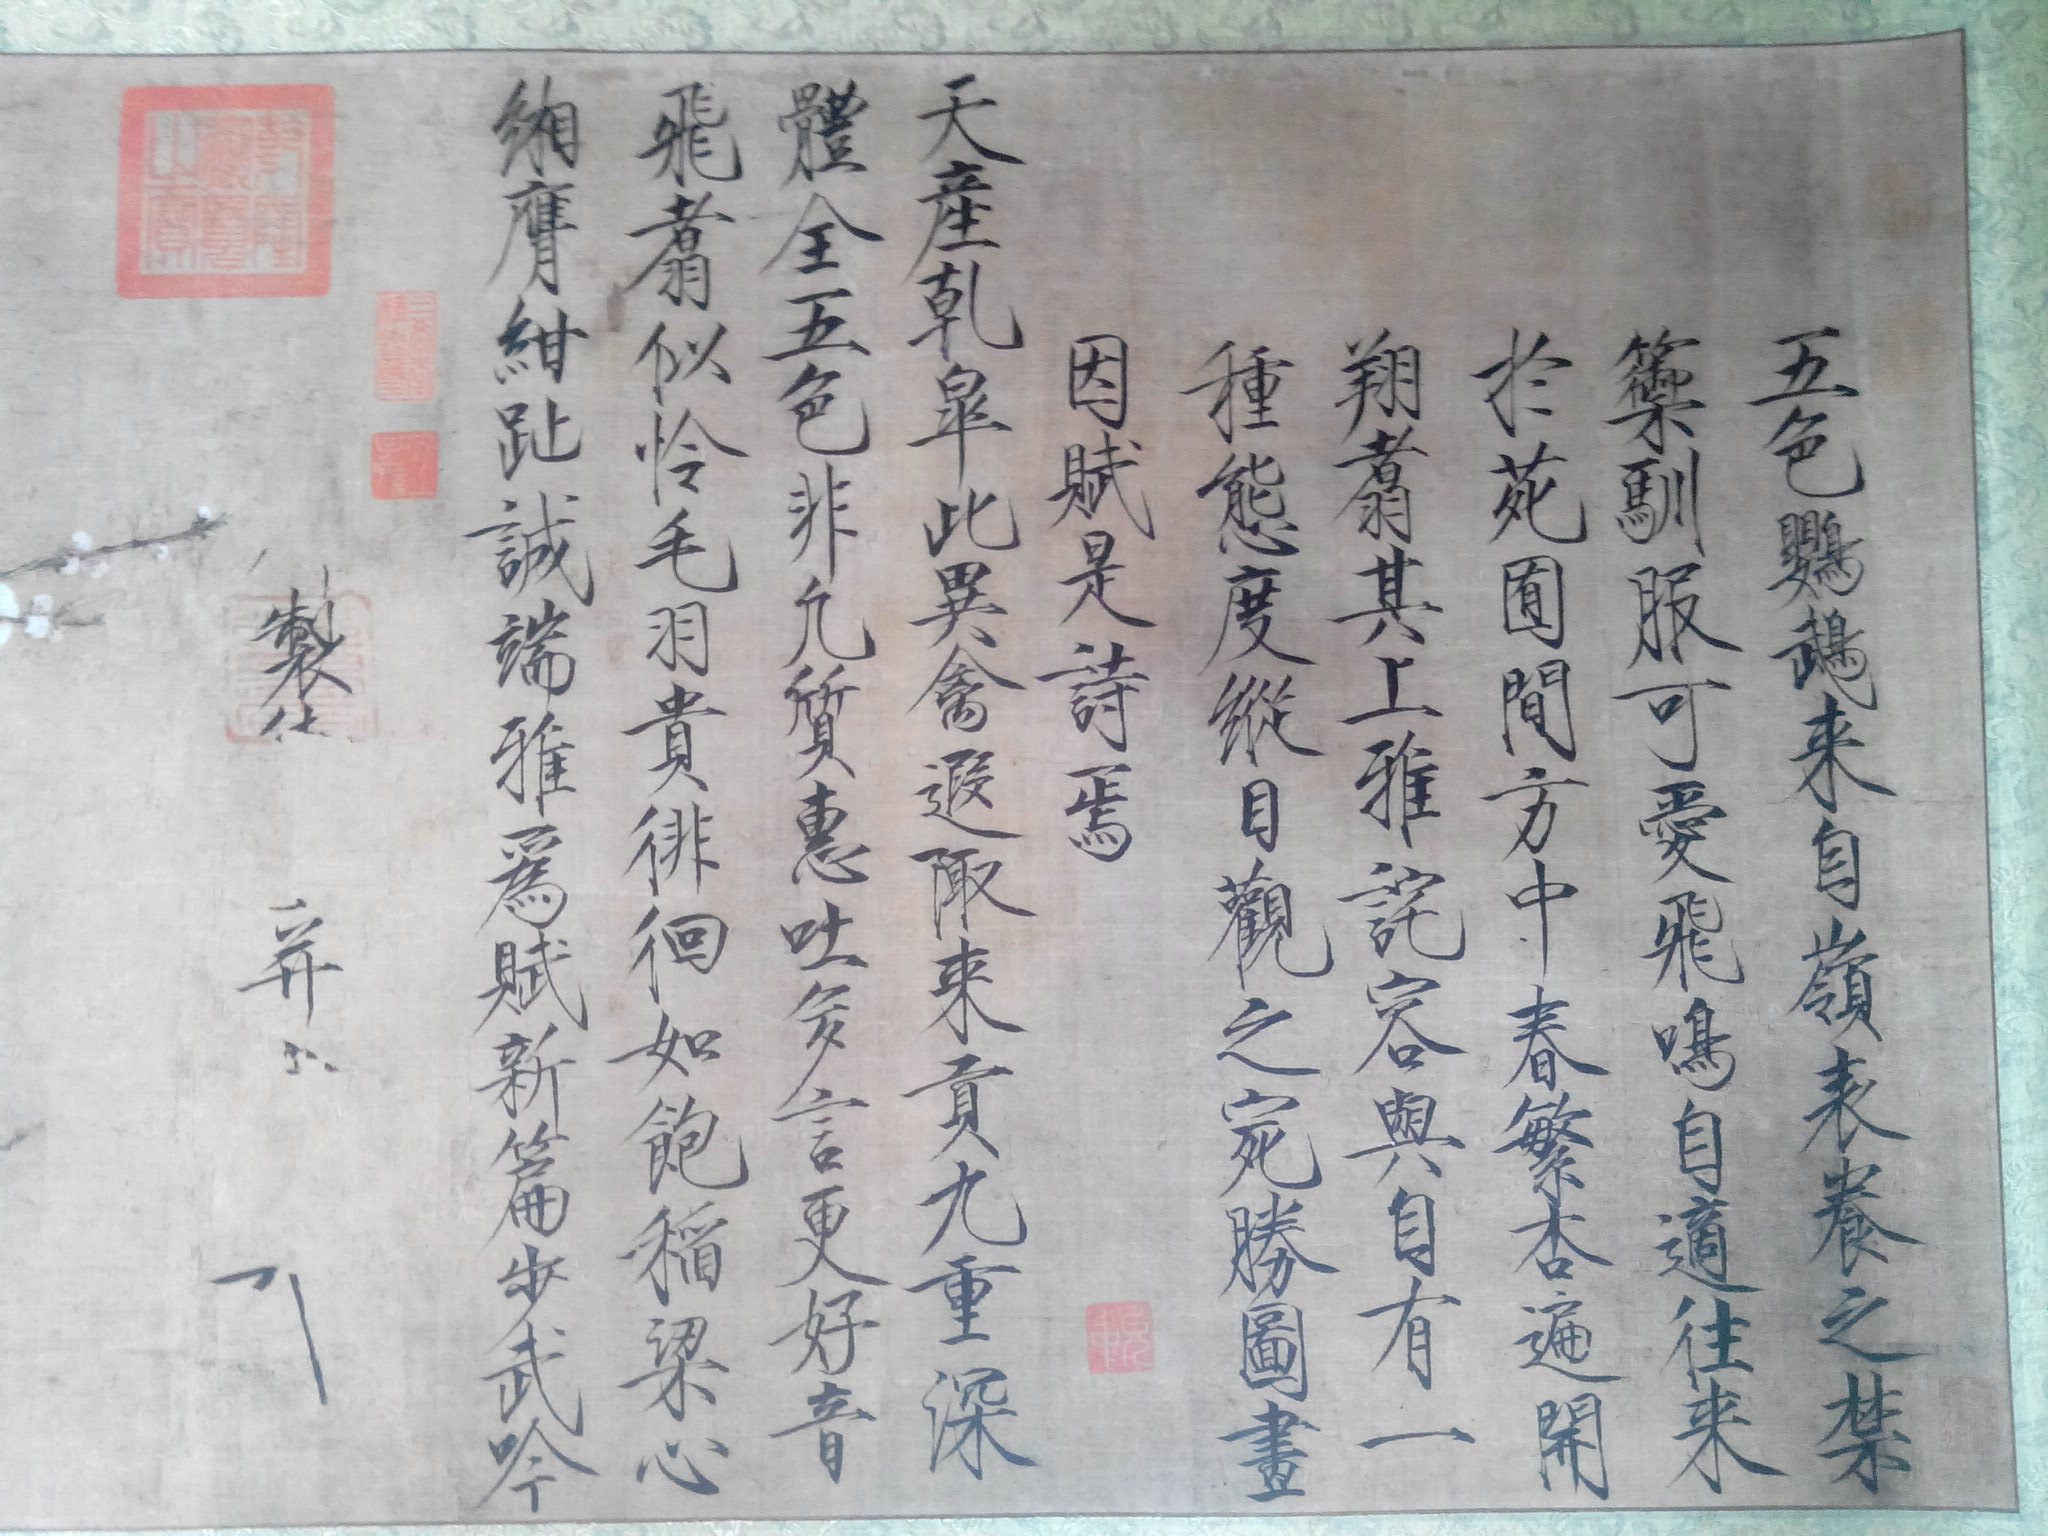 五色鸚鵡来自嶺表養之禁
籞馴服可愛飛鳴自適往来
於苑囿間方中春繁杏遍開
翔翥其上雅詫容與自有一
種態度縱目觀之宛勝圖畫
因賦是詩焉
天產乾皋此異禽遐陬来貢九重深
體全五色非凡質惠吐多言更好音
飛翥似怜毛羽貴徘徊如飽稻粱心
緗膺紺趾誠端雅爲賦新篇步武吟
製